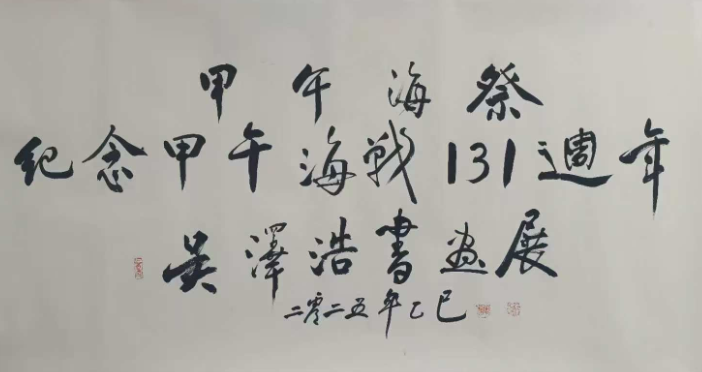 甲午海祭
纪念甲午海戰131週年
吴澤浩書画展
二零二五年乙巳